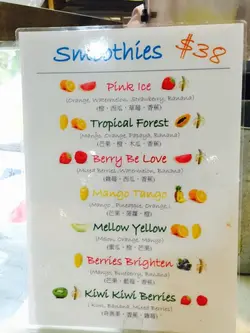 Smoothies $38
Pink Ice
(Orange, Watermelon, Strawberry, Banana)
(橙、西瓜、草莓、香蕉)
Tropical Forest
(Mango, Orange, Papaya, Banana)
(芒果、橙、木瓜、香蕉)
Berry Be Love
(Mixed Berries, Watermelon, Banana)
(雜莓、西瓜、香蕉)
Mango Tango
(Mango, Pineapple, Orange)
(芒果、菠蘿、橙)
Mellow Yellow
(Melon, Orange, Mango)
(蜜瓜、橙、芒果)
Berries Brighten
(Mango, Blueberry, Banana)
(芒果、藍莓、香蕉)
Kiwi Kiwi Berries
(Kiwi, Banana, Mixed Berries)
(奇異果、香蕉、雜莓)